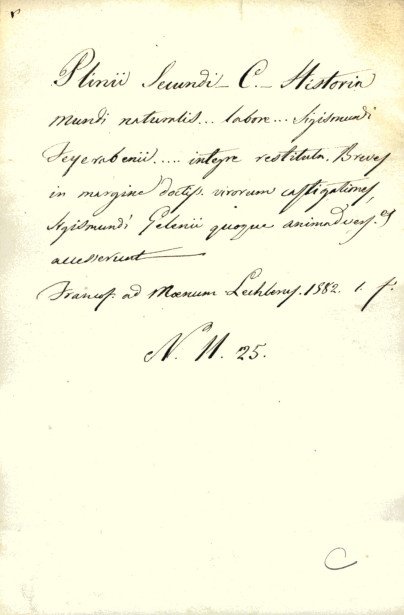 Plinii Secundi - C - Historia
mundi naturalis... labore... Sigismundi
Feyerabenii.... integre restituta. Breves
in margine doctiss. virorum castigationes,
Sigismundi Gelenii quoque animadvers.es
accesserunt
Francof: ad Moenum Lechlerus. 1582. 1. f.
N. 11. 25.
C